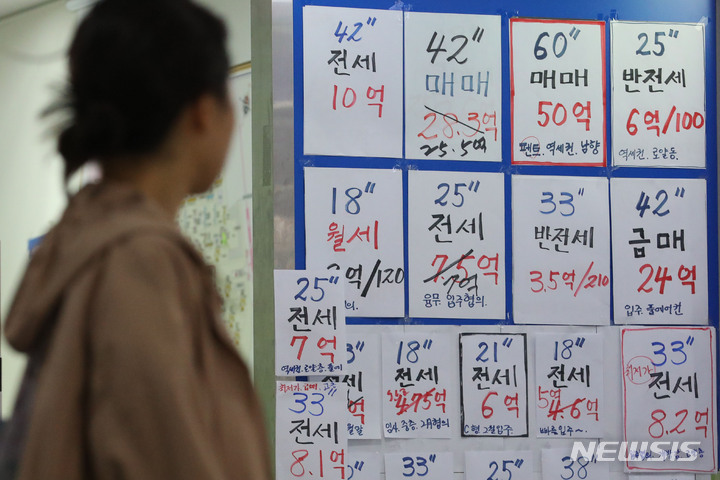 42"
전세
10억
42"
매매
28.3억
25.5억
60"
매매
50억
펜트. 역세권. 남향
25"
반전세
6억/100
역세권. 로얄동
18"
월세
억/120
25"
전세
7.5억
7억
융무. 입주협의.
33"
반전세
3.5억/210
42"
급매
24억
입주. 올에컨
25"
전세
7억
18"
전세
4.75억
21"
전세
6억
18"
전세
5억
4.6억
33"
전세
8.2억
33"
전세
8.1억
33"
25"
38"
NEWSIS